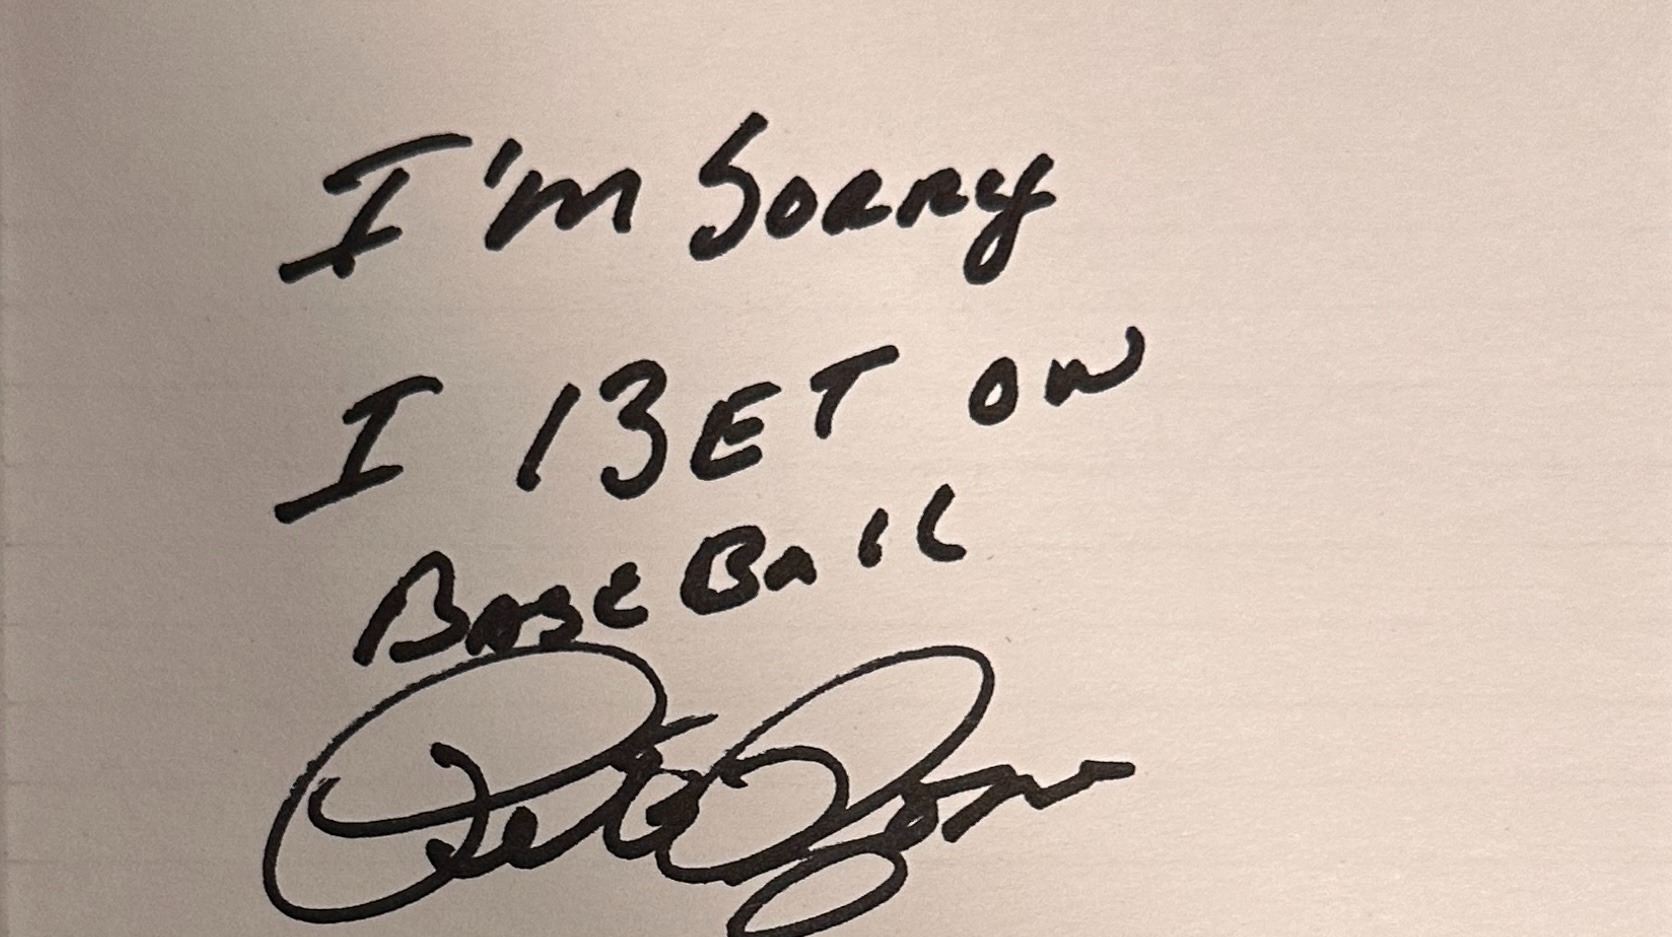 I'm Sorry
I BET ON
BaseBall
Pete Rose